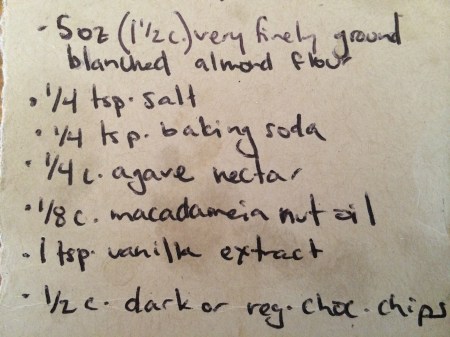 - 5oz (1 1/2 c.) very finely ground
blanched almond flour
• 1/4 tsp. salt
• 1/4 tsp. baking soda
• 1/4 c. agave nectar
• 1/8 c. macadamein nut oil
• 1 tsp. vanilla extract
• 1/2 c. dark or reg. choc. chips